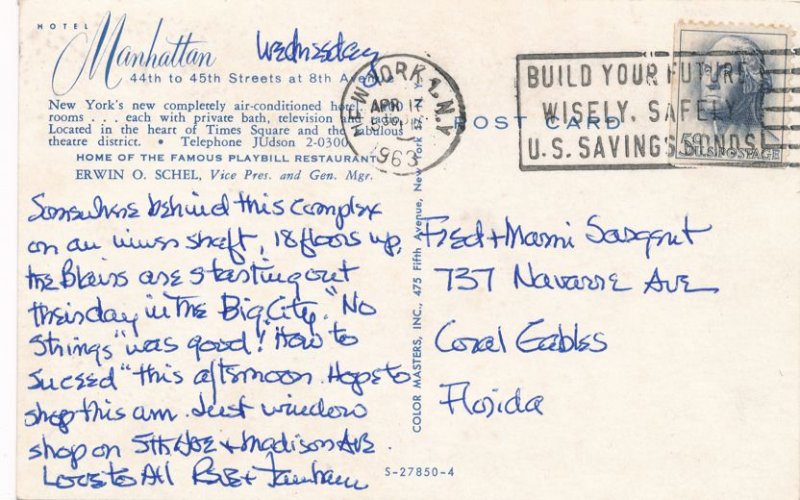 HOTEL
Manhattan
44th to 45th Streets at 8th Avenue
New York's new completely air-conditioned hotel.
rooms . . . each with private bath, television and
Located in the heart of Times Square and the fabulous
theatre district. • Telephone JUdson 2-0300
HOME OF THE FAMOUS PLAYBILL RESTAURANT
ERWIN O. SCHEL, Vice Pres. and Gen. Mgr.
Wednesday
Somewhere behind this complex
on an inner shaft, 18 floors up,
the Blairs are starting out
their day in the Big City. "No
Strings" was good! How to
Suceed" this afternoon. Hope to
shop this am. Just window
shop on 5th Ave + Madison Ave.
Love to All Bob +
COLOR MASTERS, INC., 475 Fifth Avenue, New York 17, N. Y.
S-27850-4
POST CARD
NEW YORK 1, N.Y.
APR 17
1963
BUILD YOUR FUTURE
WISELY, SAFELY
U.S. SAVINGS BONDS
5¢ U.S. POSTAGE
Fred + Marni Sargent
737 Navarre Ave
Coral Gables
Florida